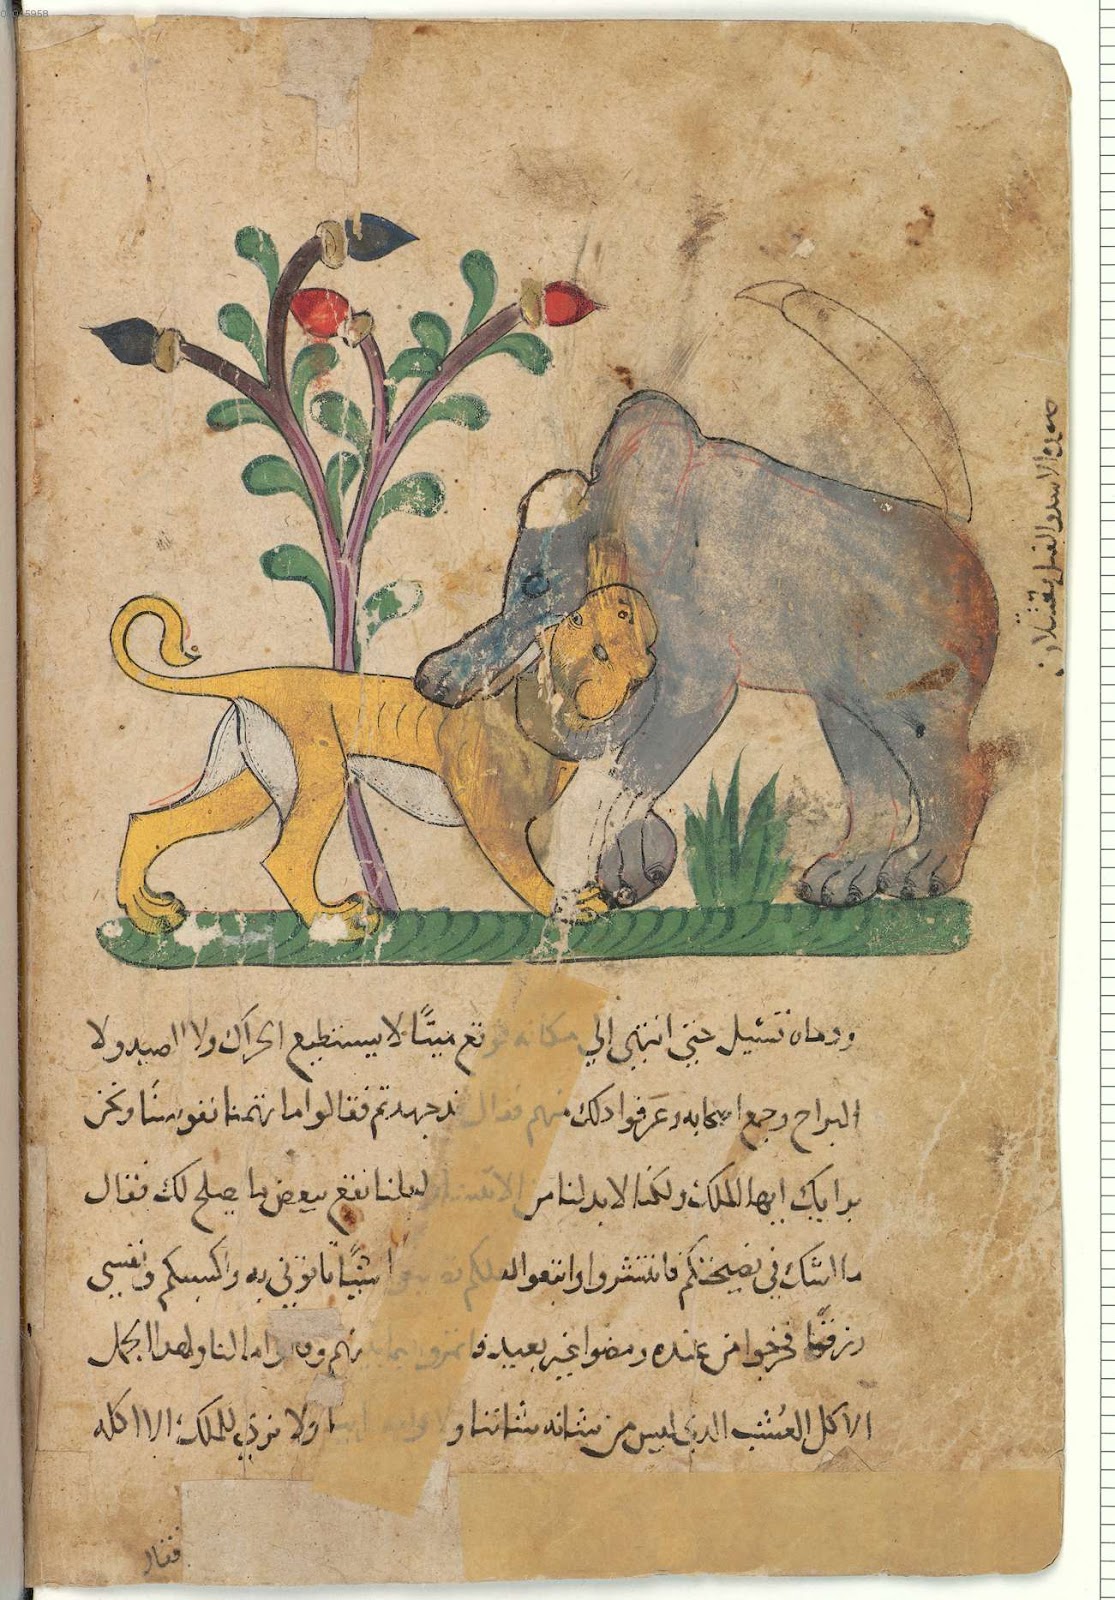 5958
صورة الاسد والفيل يقتتلان
ودماه تسيل حتي انتهي الي مكانه فوقع ميتًا لا يستطيع الحراك ولا الصيد ولا
البراح وجمع اصحابه وعرفوا ذلك منهم فقال قد جهدتم فقالوا ما تهمنا نفوسنا ونحن
نراك ايها الملك ولكنا لا بد لنا من لعلنا نقع ببعض ما يصلح لك فقال
ما اشك في نصيحتكم فانتشروا وابتغوا لعلكم شيئًا تاتوني به واكسبكم ونفسي
رزقًا فخرجوا من عنده ومضوا غير بعيد فاتمروا بينهم وقالوا ما لنا ولهذا الجمل
الاكل العُشب الذي ليس من شانه شاننا ولا ولا نزين للملك الا اكله
فقال